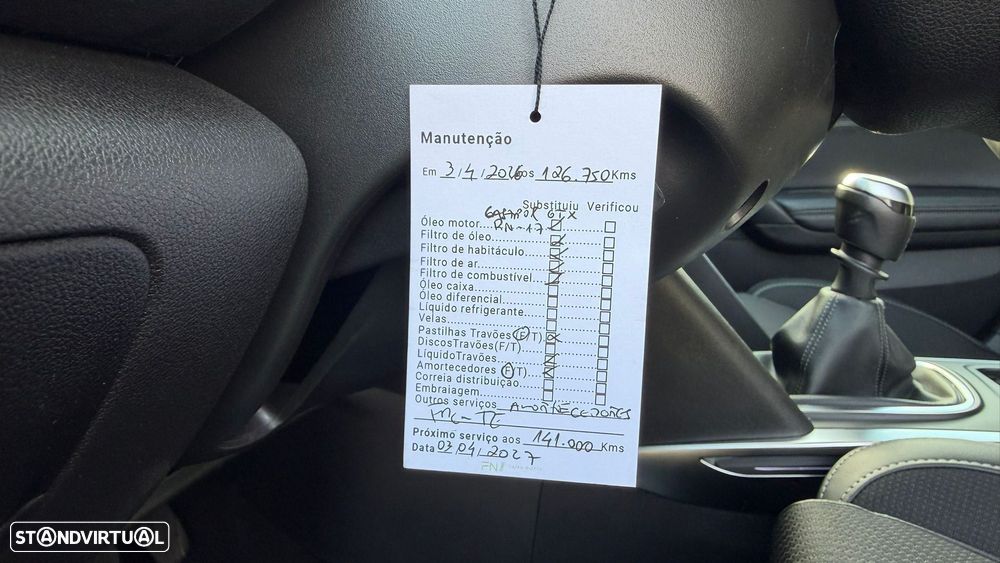 Manutenção
Em 3/4/2026 aos 126.750 Kms
Substituiu Verificou
Óleo motor RN-17
Filtro de óleo
Filtro de habitáculo
Filtro de ar
Filtro de combustível
Óleo caixa
Óleo diferencial
Líquido refrigerante
Velas
Pastilhas Travões (F/T)
DiscosTravões(F/T)
LíquidoTravões
Amortecedores (F/T)
Correia distribuição
Embraiagem
Outros serviços AMORTECEDORES
Próximo serviço aos 141.000 Kms
Data 03/04/2027
FN
STANDVIRTUAL